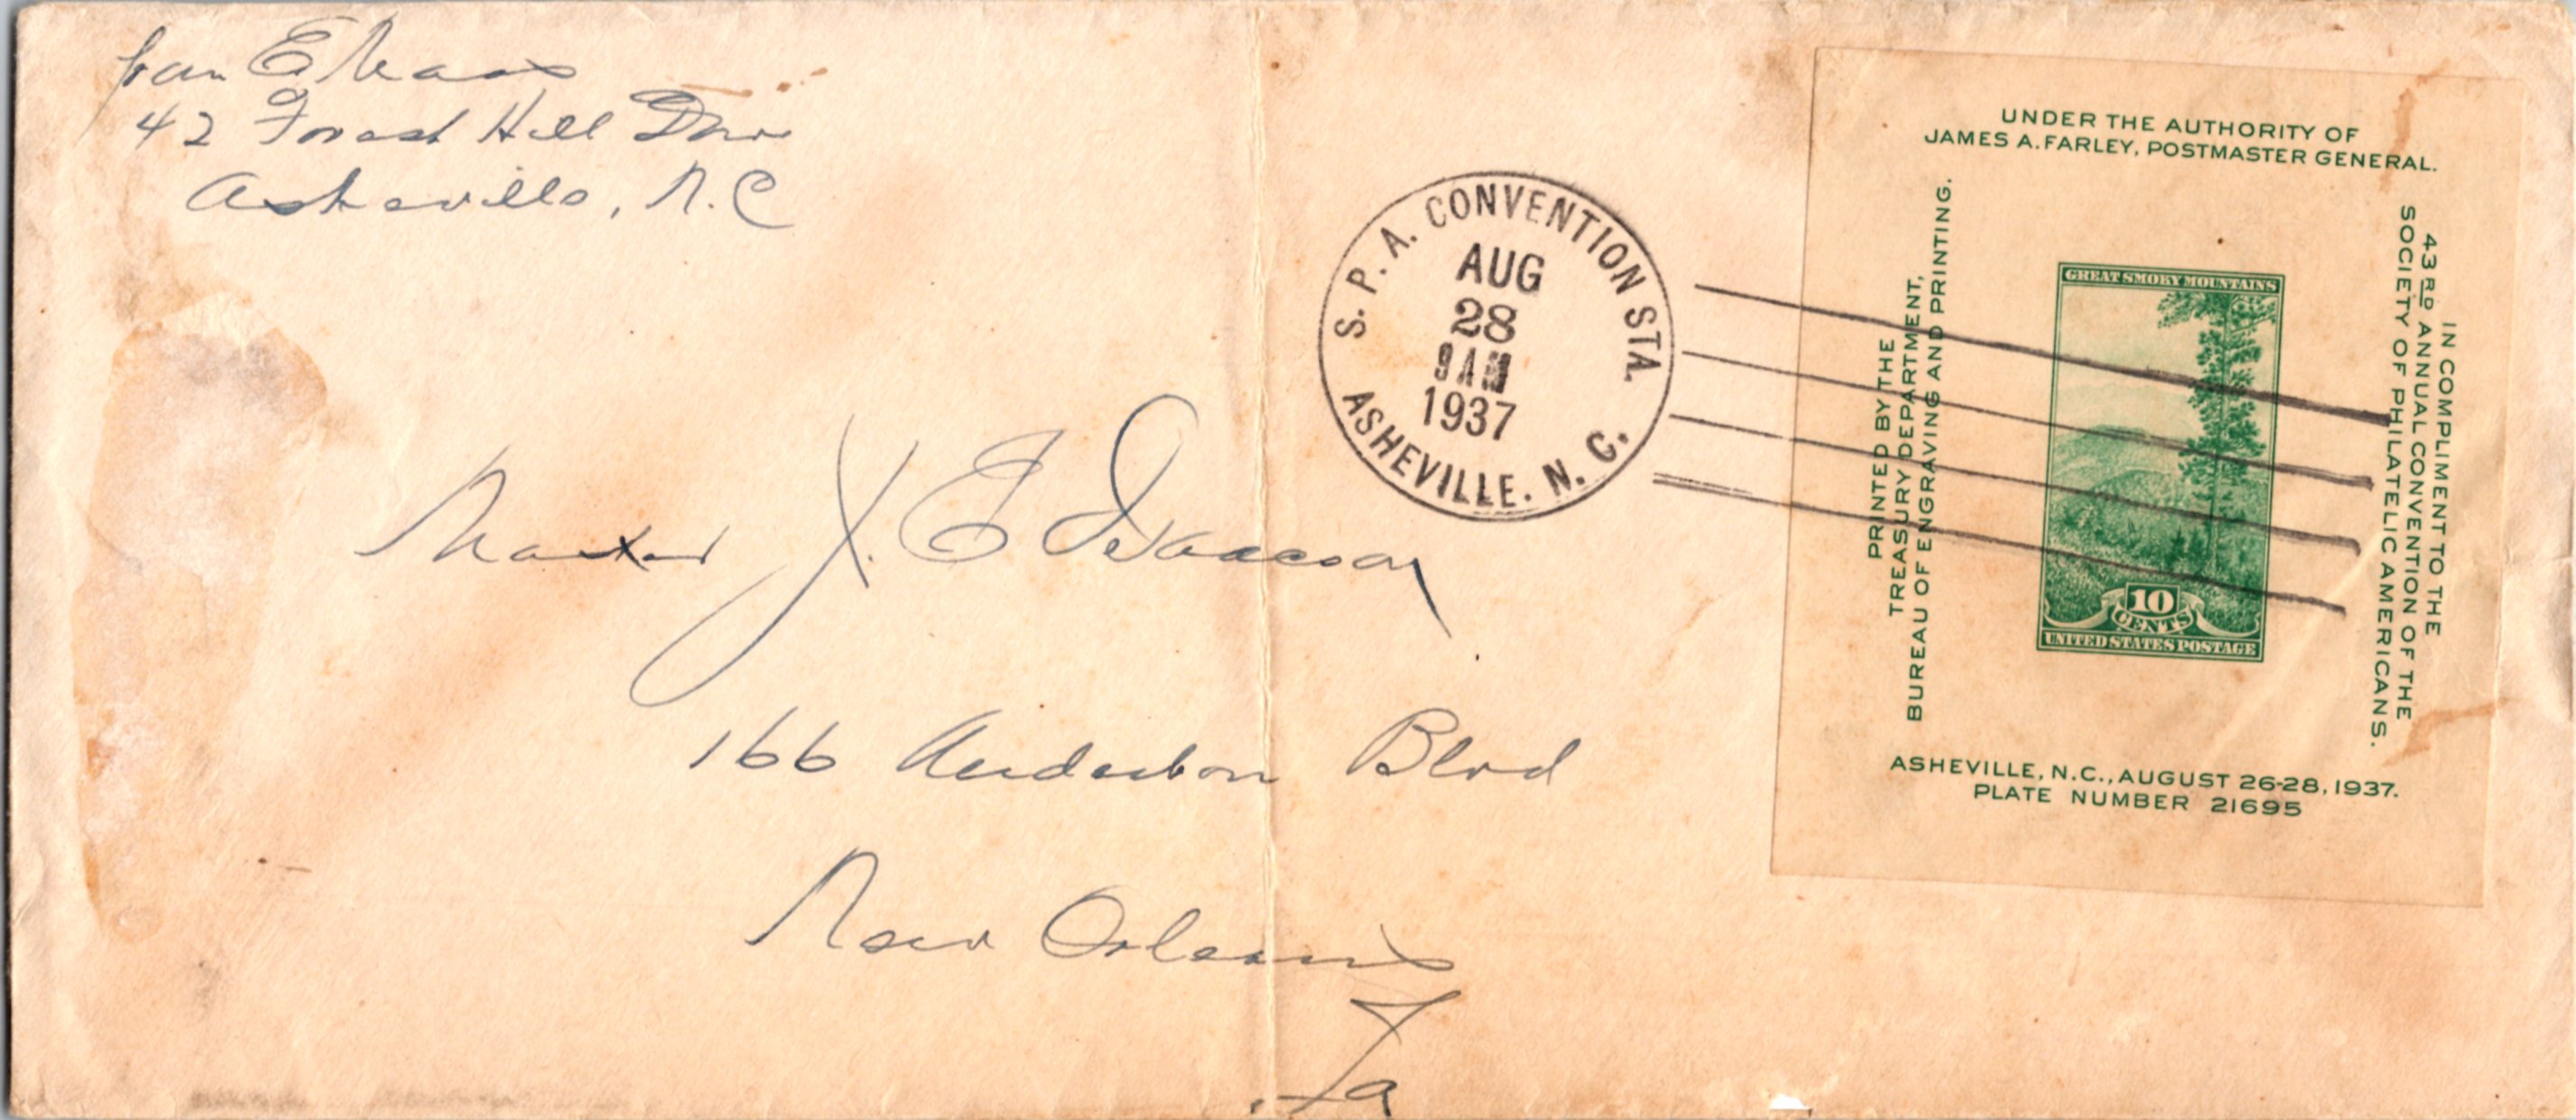 from E Maas
42 Forest Hill Drive
Asheville, N.C
Master J. E Isaacson
166 Audubon Blvd
New Orleans
La
S. P. A. CONVENTION STA.
AUG
28
9 AM
1937
ASHEVILLE. N. C.
UNDER THE AUTHORITY OF
JAMES A. FARLEY, POSTMASTER GENERAL.
PRINTED BY THE
TREASURY DEPARTMENT,
BUREAU OF ENGRAVING AND PRINTING.
GREAT SMOKY MOUNTAINS
10
CENTS
UNITED STATES POSTAGE
IN COMPLIMENT TO THE
43RD ANNUAL CONVENTION OF THE
SOCIETY OF PHILATELIC AMERICANS.
ASHEVILLE, N.C., AUGUST 26-28, 1937.
PLATE NUMBER 21695